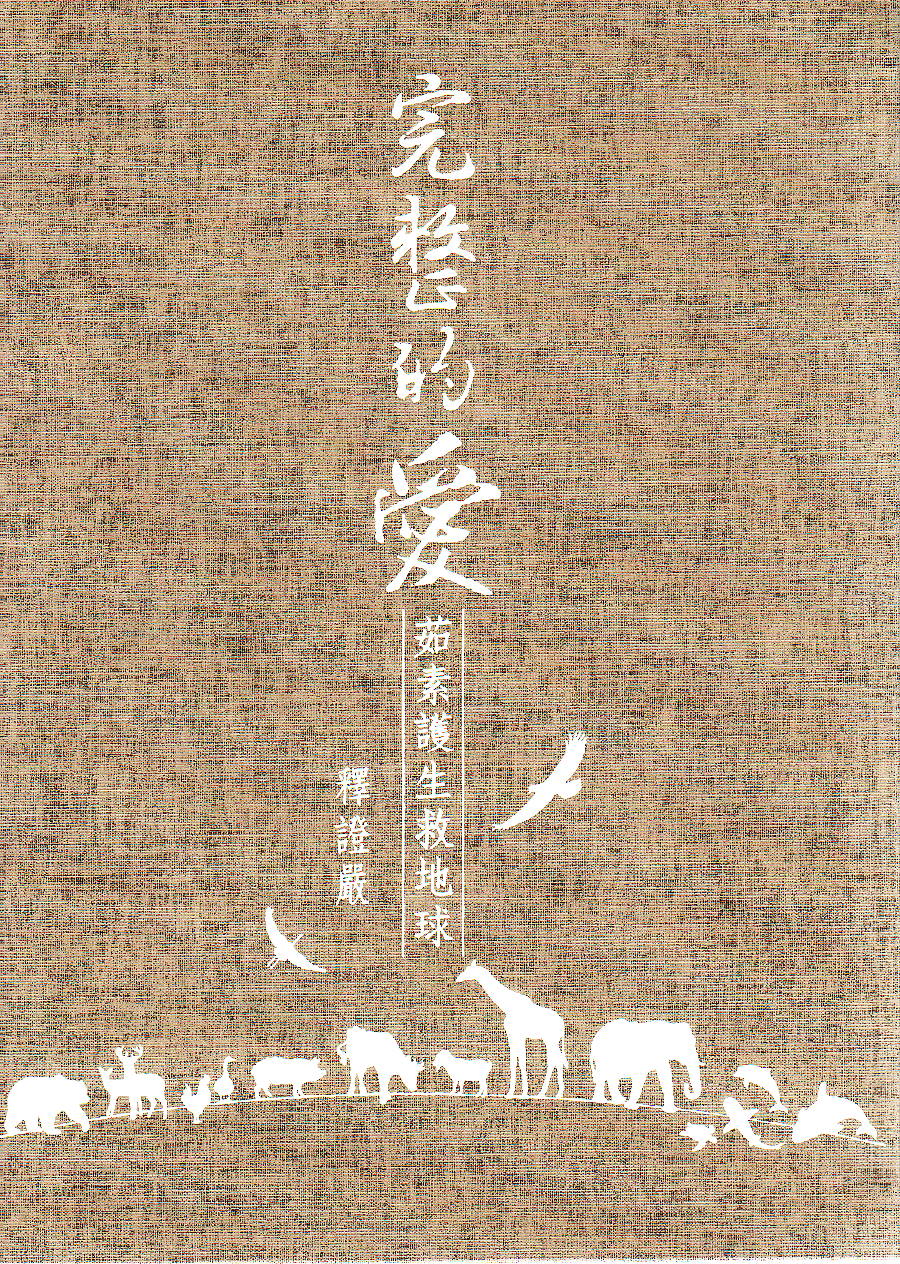 完整的愛
茹素護生救地球
釋證嚴